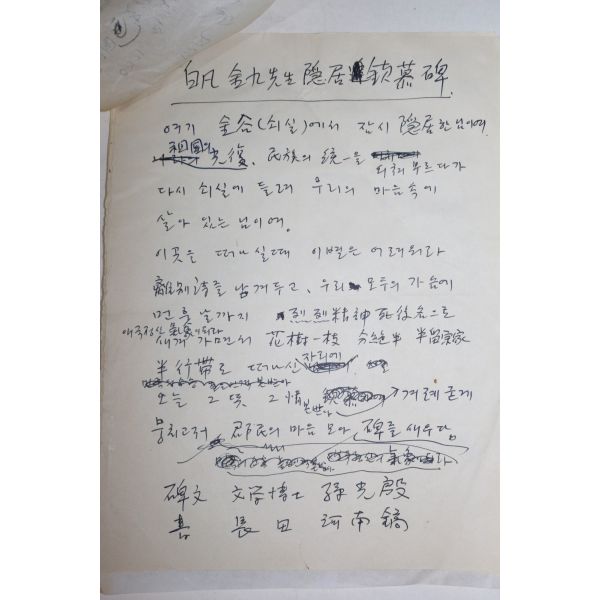 白凡 金九先生 隠居 鎖慕碑
여기 金谷(쇠실)에서 잠시 隠居한 님이여
祖國의
光復. 民族의 統一을
외쳐 부르다가
다시 쇠실에 들려 우리의 마음속에
살아 있는 님이여.
이곳을 떠나실때 이별은 어려워라
離別詩를 남겨두고, 우리 모두의 가슴에
먼 훗날까지 烈烈精神 死後名으로
애국정신 氣象이되라
새겨 가면서 花樹一枝 分絶半 半留家
자리에
半行帶로 떠나신
오늘 그 뜻 그 情 겨레 굳게
본받아
뭉치고저 郡民의 마음 모아 碑를 세우다.
碑文 文学博士 孫光殷
書 長田 河南鎬